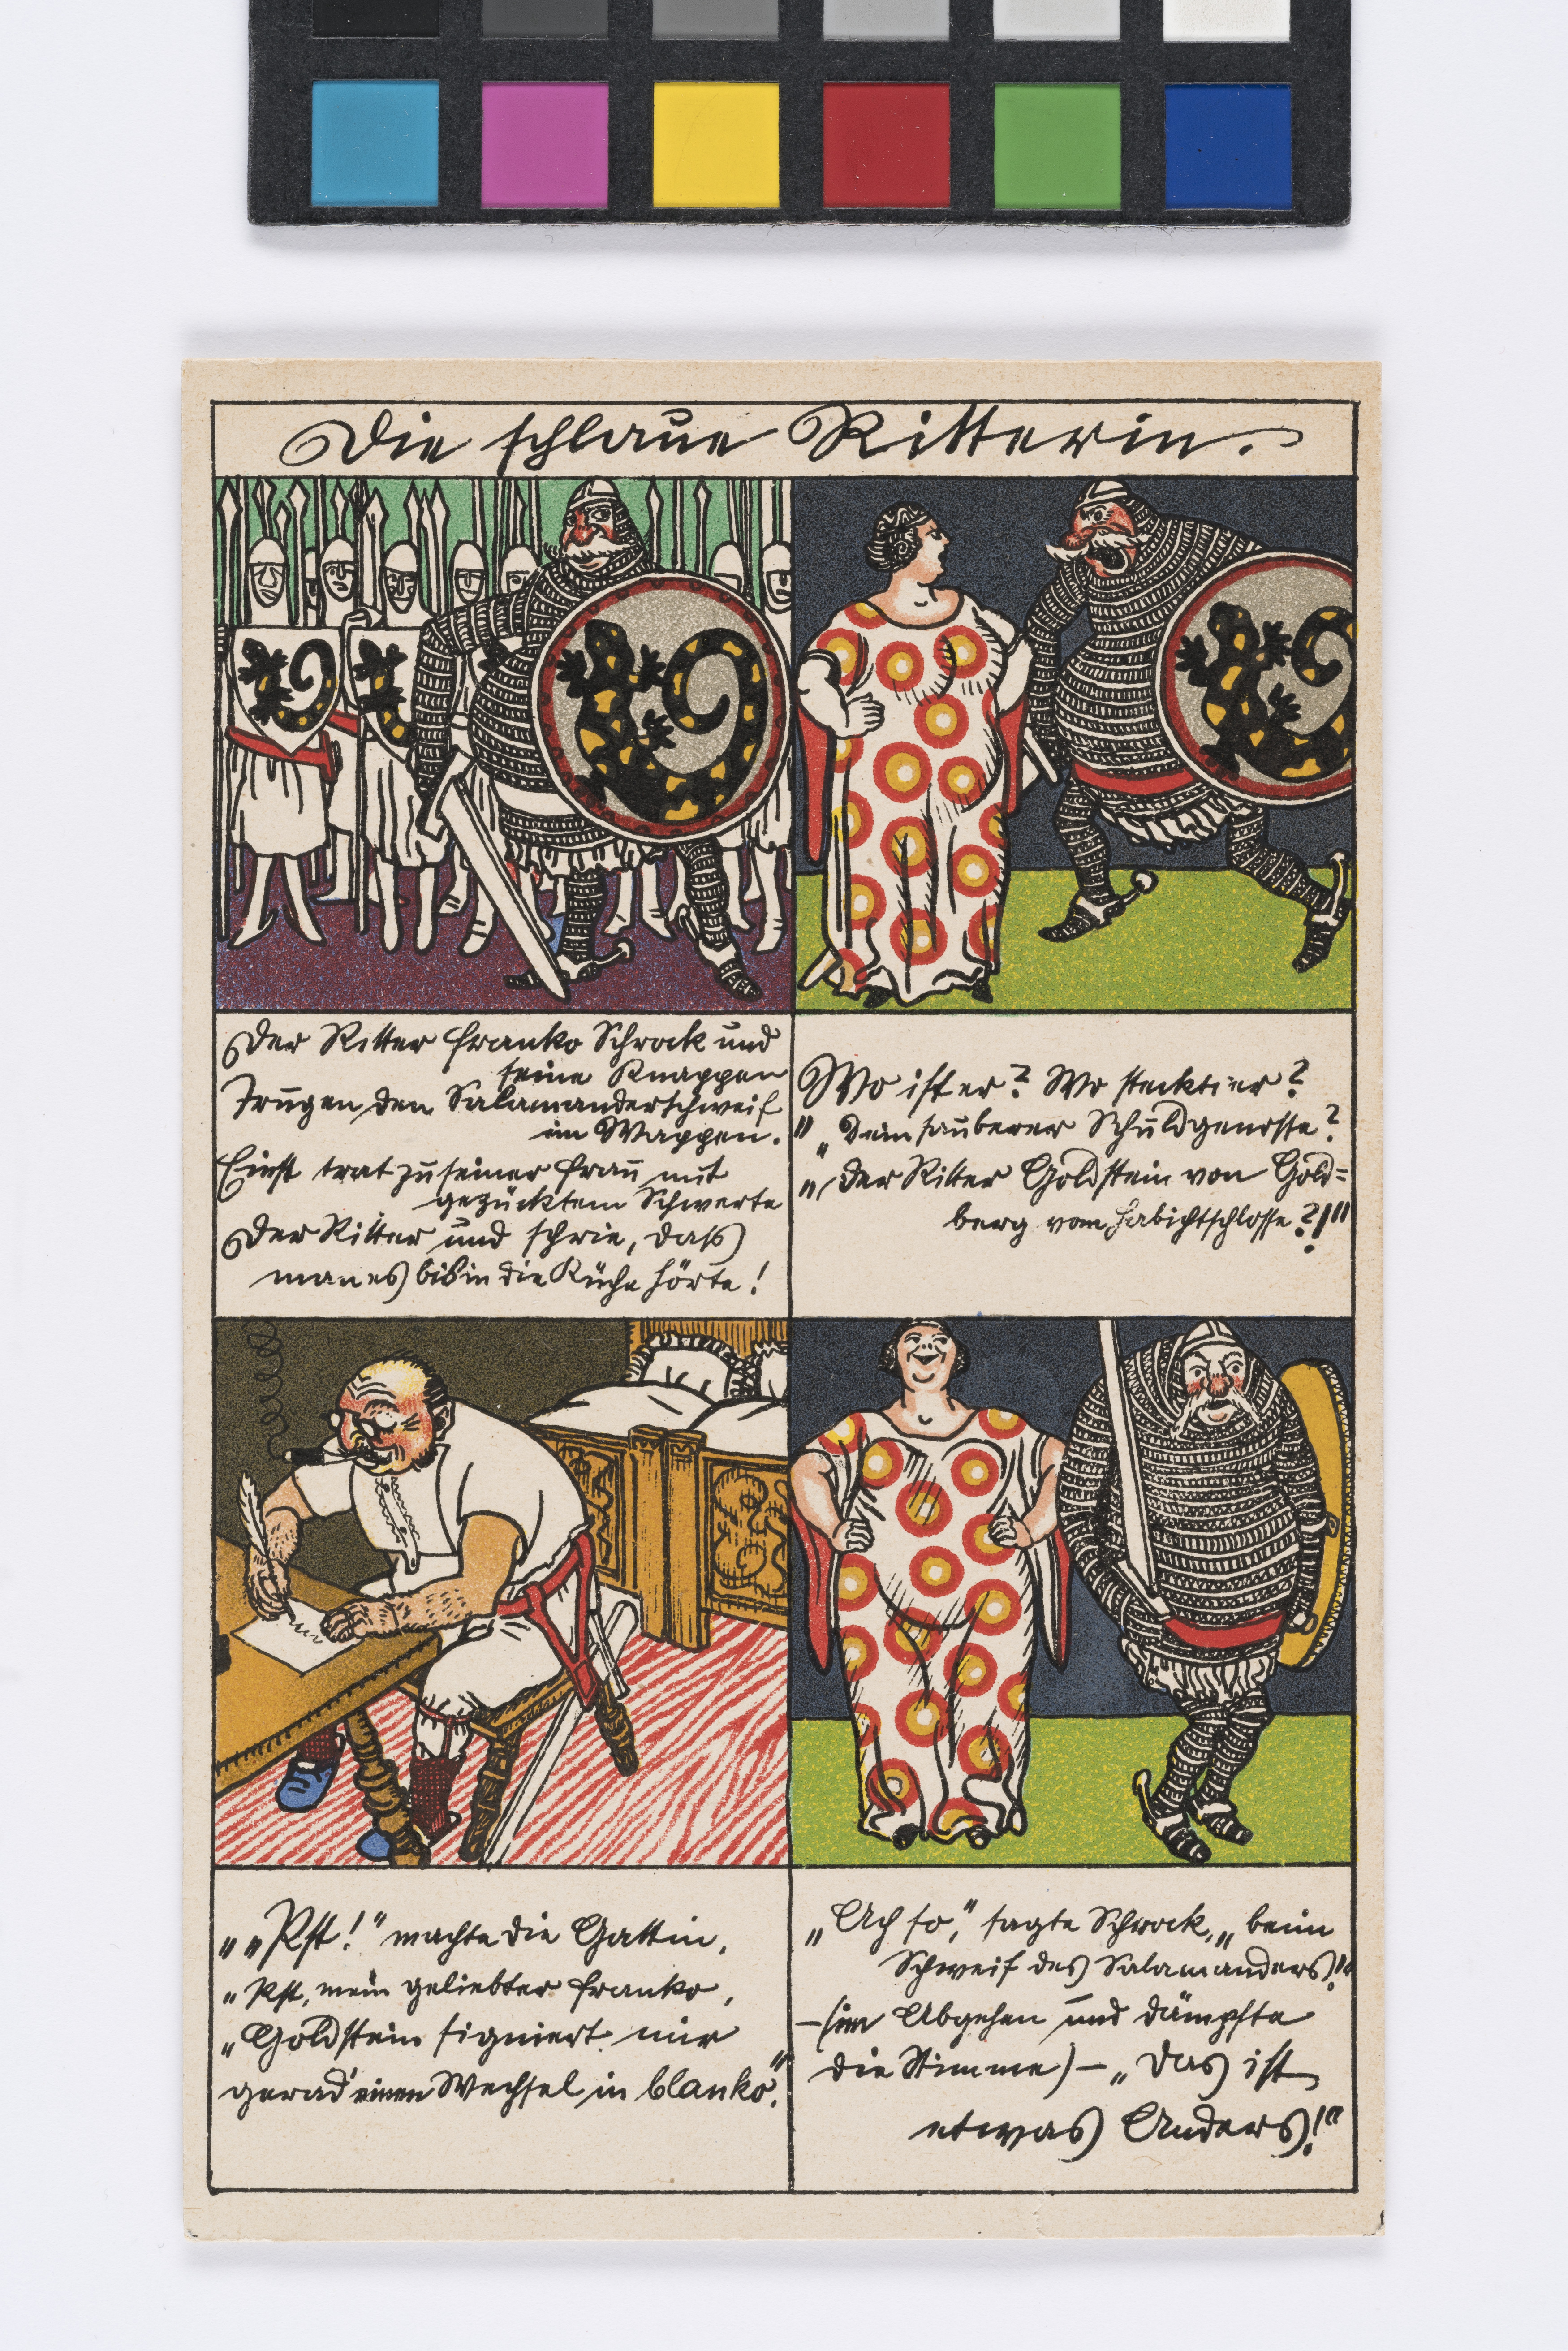 Die schlaue Ritterin.
Der Ritter Franko Schrock und
seine Knappen
Trugen den Salamanderschweif
im Wappen.
Einst trat zu seiner Frau mit
gezücktem Schwerte
Der Ritter und schrie, dass
man es bis in die Küche hörte!
Wo ist er? Wo steckt er?
„„Dein sauberer Schuldgenosse?
„„Der Ritter Goldstein von Gold=
berg vom Habichtschlosse?!""
„„Pst!" machte die Gattin,
„Pst, mein geliebter Franko,
„Goldstein signiert mir
gerad' einen Wechsel in blanko."
„Ach so," sagte Schrock, „beim
Schweif des Salamanders!"
– (im Abgehen und dämpfte
die Stimme) – „Das ist
etwas Anders!"